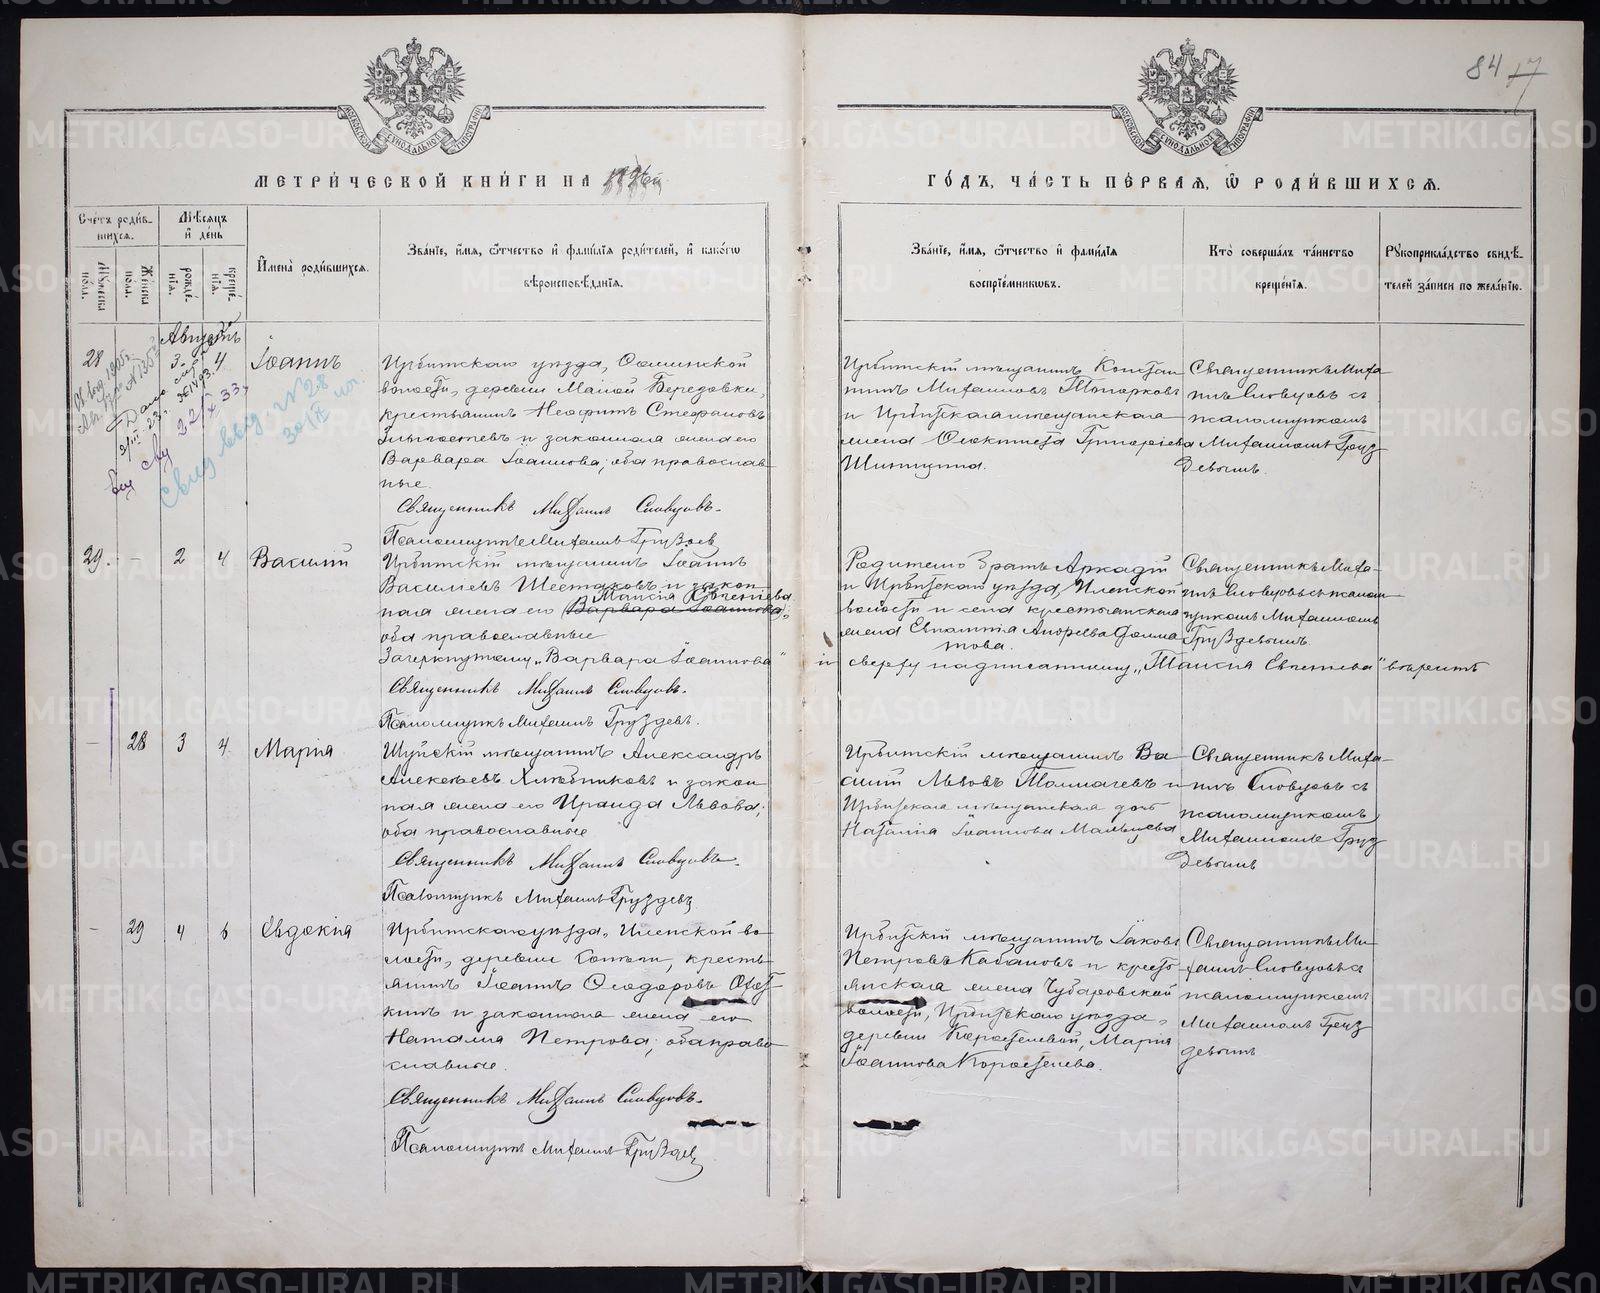 84 17
МОСКОВСКОЙ СѴНОДАЛЬНОЙ ТИПОГРАФІИ
МОСКОВСКОЙ СѴНОДАЛЬНОЙ ТИПОГРАФІИ
МЕТРИ́ЧЕСКОЙ КНИ́ГИ НА
ГО́ДЪ, ЧА́СТЬ ПЕ́РВАЯ, Ѡ РОДИ́ВШИХСЯ.
Сче́тъ роди́в-
шихся.
Мꙋжеска по́ла.
Же́нска по́ла.
Мѣ́сяцъ и де́нь
рожде́-
нїя.
креще́-
нїя.
И҆мена̀ роди́вшихся.
Зва́нїе, и҆́мя, ѻ҆́тчество и҆ фами́лїя роди́телей, и҆ како́гѡ
вѣроисповѣ́данїя.
Зва́нїе, и҆́мя, ѻ҆́тчество и҆ фами́лїя
воспрїе́мникѡвъ.
Кто̀ соверша́лъ та́инство
креще́нїя.
Рꙋкоприкла́дство свидѣ́-
телей за́писи по жела́нїю.
Августъ
28 3. 4 Іоаннъ
Ирбитскаго уѣзда,
волости, деревни Малой Бередовки,
крестьянинъ Неофитъ Стефановъ
и законная жена его
Варвара Іоаннова; оба православ-
ные.
Священникъ Михаилъ Словцовъ.
Псаломщикъ Михаилъ Груздев
Ирбитскій мѣщанинъ Констан-
тинъ Михаиловъ Топорковъ
и Ирбитская мѣщанская
жена Григоріева
Священникъ Миха-
илъ Словцовъ съ
псаломщикомъ
Михаиломъ Груз
девымъ.
29. - 2 4 Василій
Ирбитскій мѣщанинъ Іоаннъ
Васильевъ Шестаковъ и закон-
Таисія Евгеніева
ная жена его (Варвара Іоаннова);
оба православные
Зачеркнутому „Варвара Іоаннова“
и сверху надписанному „Таисія Евгеніева“ вѣрить
Священникъ Михаилъ Словцовъ.
Псаломщикъ Михаилъ Груздевъ.
Родителю братъ Аркадій
и Ирбитскаго уѣзда, Иленской
волости и села крестьянская
жена Евпатія Андреева
Священникъ Миха-
илъ Словцовъ съ псалом-
щикомъ Михаиломъ
Груздевымъ.
- 28 3 4. Марія
Шуйскій мѣщанинъ Александръ
Алексѣевъ Хлѣбниковъ и закон-
ная жена его Ираида Львова;
оба православные
Священникъ Михаилъ Словцовъ.
Псаломщикъ Михаилъ Груздевъ
Ирбитскій мѣщанинъ Ва-
силій Львовъ Толмачевъ и
Ирбитская мѣщанская дочь
Наталія Іоаннова Мальцева
Священникъ Миха-
илъ Словцовъ съ
псаломщикомъ
Михаиломъ Груз
девымъ
- 29 4 6 Евдокія
Ирбитскаго уѣзда, Иленской во-
лости, деревни кресть-
янинъ Іоаннъ Ѳеодоровъ
кинъ и законная жена его
Наталія Петрова; оба право-
славные.
Священникъ Михаилъ Словцовъ.
Псаломщикъ Михаилъ Груздевъ
Ирбитскій мѣщанинъ Іаковъ
Петровъ Кабановъ и кресть-
янская жена Чубаровской
волости, Ирбитскаго уѣзда,
деревни Коростелевой, Марія
Іоаннова Коростелева.
Священникъ Ми-
хаилъ Словцовъ съ
псаломщикомъ
Михаиломъ Груз
девымъ
METRIKI.GASO-URAL.RU